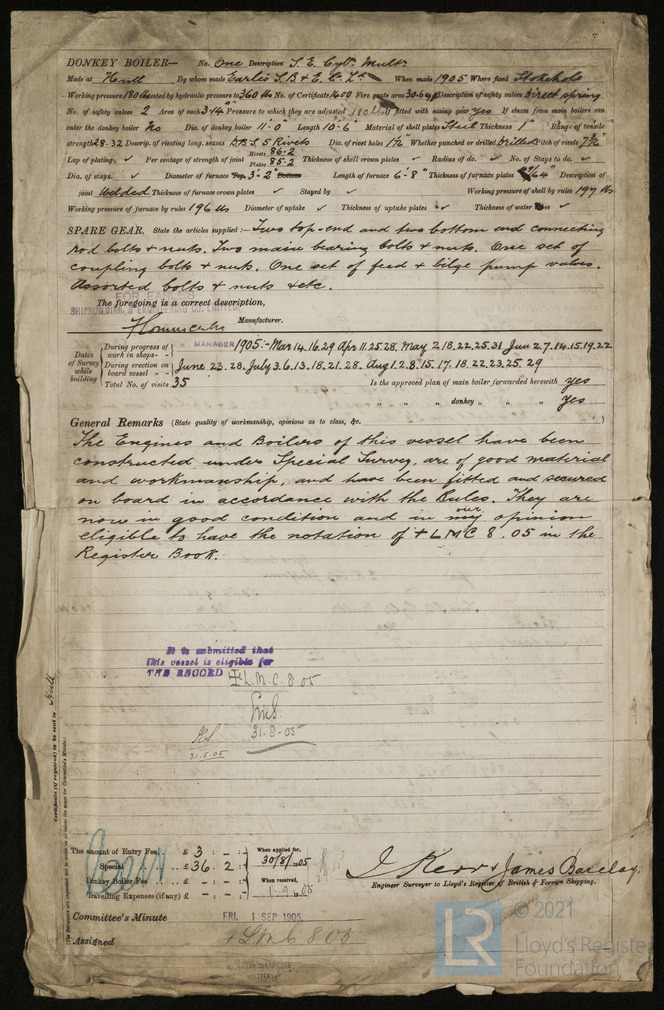 DONKEY BOILER— No. One Description S. E. Cyl. Mult.
Made at Hull By whom made Earle's S.B. & E. Co. Ld. When made 1905 Where fixed Stokehold
Working pressure 180 lbs tested by hydraulic pressure to 360 lbs No. of Certificate 1400 Fire grate area 30.6 Description of safety valves Direct spring
No. of safety valves 2 Area of each 3.14" Pressure to which they are adjusted 180 lbs If fitted with easing gear yes If steam from main boilers can
enter the donkey boiler No Dia. of donkey boiler 11'-0" Length 10'-6" Material of shell plates Steel Thickness 1" Range of tensile
strength 28.32 Descrip. of riveting long. seams D.B.S. 5 Rivets Dia. of rivet holes Whether punched or drilled Drilled Pitch of rivets 7½"
Lap of plating ✓ Per centage of strength of joint Rivets 86.2 Plates 85.2 Thickness of shell crown plates ✓ Radius of do. ✓ No. of Stays to do. ✓
Dia. of stays. ✓ Diameter of furnace Top 3'-2" Bottom Length of furnace 6'-8" Thickness of furnace plates Description of
joint Welded Thickness of furnace crown plates ✓ Stayed by ✓ Working pressure of shell by rules 197 lbs
Working pressure of furnace by rules 196 lbs Diameter of uptake ✓ Thickness of uptake plates ✓ Thickness of water tubes ✓
SPARE GEAR. State the articles supplied:— Two top-end and two bottom end connecting
rod bolts & nuts. Two main bearing bolts & nuts. One set of
coupling bolts & nuts. One set of feed & bilge pump valves.
Assorted bolts & nuts &etc.
FOR EARLE'S
The foregoing is a correct description,
SHIPBUILDING & ENGINEERING CO. LIMITED.
Manufacturer.
MANAGER
Dates of Survey while building
During progress of work in shops - - 1905:- Mar 14.16.29 Apr 11.25.28. May 2.18.22.25.31 June 2.7.14.15.19.22
During erection on board vessel - - - June 23.28. July 3.6.13.18.21.28. Aug 1.2.8.15.17.18.22.23.25.29
Total No. of visits 35 Is the approved plan of main boiler forwarded herewith yes
" " " donkey " " " yes
General Remarks (State quality of workmanship, opinions as to class, &c.
The Engines and Boilers of this vessel have been
constructed under Special Survey, are of good material
and workmanship, and have been fitted and secured
on board in accordance with the Rules. They are
now in good condition and in my our opinion
eligible to have the notation of + LMC 8.05 in the
Register Book.
It is submitted that
this vessel is eligible for
THE RECORD + L.M.C. 8.05
31.8.05
31.8.05
Certificate (if required) to be sent to Hull
The amount of Entry Fee.. £ 3 : - : - When applied for,
Special ... £ 36 . 2 : 30/8/1905
Donkey Boiler Fee ... £ - : - : - When received,
Travelling Expenses (if any) £ - : - : - 1.9.05
J Kerr & James Barclay.
Engineer Surveyor to Lloyd's Register of British & Foreign Shipping.
Committee's Minute FRI. 1 SEP 1905
Assigned + LMC 8.05
LR © 2021
Lloyd's Register
Foundation